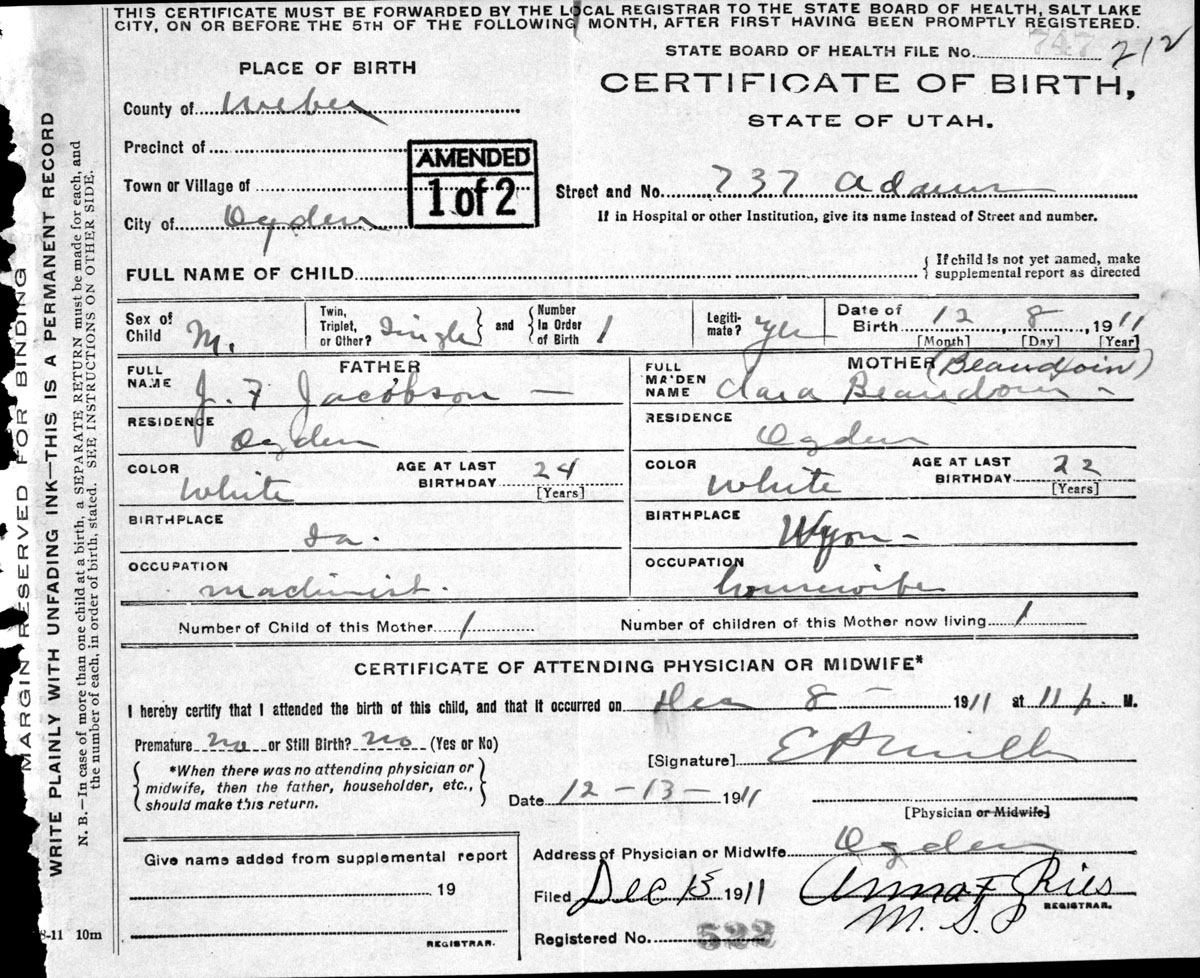 THIS CERTIFICATE MUST BE FORWARDED BY THE LOCAL REGISTRAR TO THE STATE BOARD OF HEALTH, SALT LAKE
CITY, ON OR BEFORE THE 5TH OF THE FOLLOWING MONTH, AFTER FIRST HAVING BEEN PROMPTLY REGISTERED.
STATE BOARD OF HEALTH FILE No. 747 212
PLACE OF BIRTH
CERTIFICATE OF BIRTH,
STATE OF UTAH.
County of Weber
Precinct of
AMENDED
1 of 2
Town or Village of
Street and No. 737 Adams
City of Ogden
If in Hospital or other Institution, give its name instead of Street and number.
FULL NAME OF CHILD
{ If child is not yet named, make
supplemental report as directed
Sex of Child M.
Twin, Triplet, or Other? Single } and { Number In Order of Birth 1
Legiti- mate? Yes
Date of Birth 12, 8, 1911
[Month] [Day] [Year]
FATHER
MOTHER (Beaudoin)
FULL NAME J. F Jacobson —
FULL MAIDEN NAME Clara Beaudoin -
RESIDENCE Ogden
RESIDENCE Ogden
COLOR White
AGE AT LAST BIRTHDAY 24 [Years]
COLOR White
AGE AT LAST BIRTHDAY 22 [Years]
BIRTHPLACE Ia.
BIRTHPLACE Wyom -
OCCUPATION machinist.
OCCUPATION housewife
Number of Child of this Mother 1
Number of children of this Mother now living 1
CERTIFICATE OF ATTENDING PHYSICIAN OR MIDWIFE*
I hereby certify that I attended the birth of this child, and that it occurred on Dec 8 - 1911 at 11 p. M.
Premature no or Still Birth? no (Yes or No)
[Signature]
{ *When there was no attending physician or
midwife, then the father, householder, etc.,
should make this return. }
Date 12 - 13 - 1911
[Physician or Midwife]
Give name added from supplemental report
19
REGISTRAR.
Address of Physician or Midwife Ogden
Filed Dec 13 1911
Anna F Ries
REGISTRAR.
Registered No. 522
8-11 10m
MARGIN RESERVED FOR BINDING
WRITE PLAINLY WITH UNFADING INK—THIS IS A PERMANENT RECORD
N. B.—In case of more than one child at a birth, a SEPARATE RETURN must be made for each, and
the number of each, in order of birth, stated. SEE INSTRUCTIONS ON OTHER SIDE.